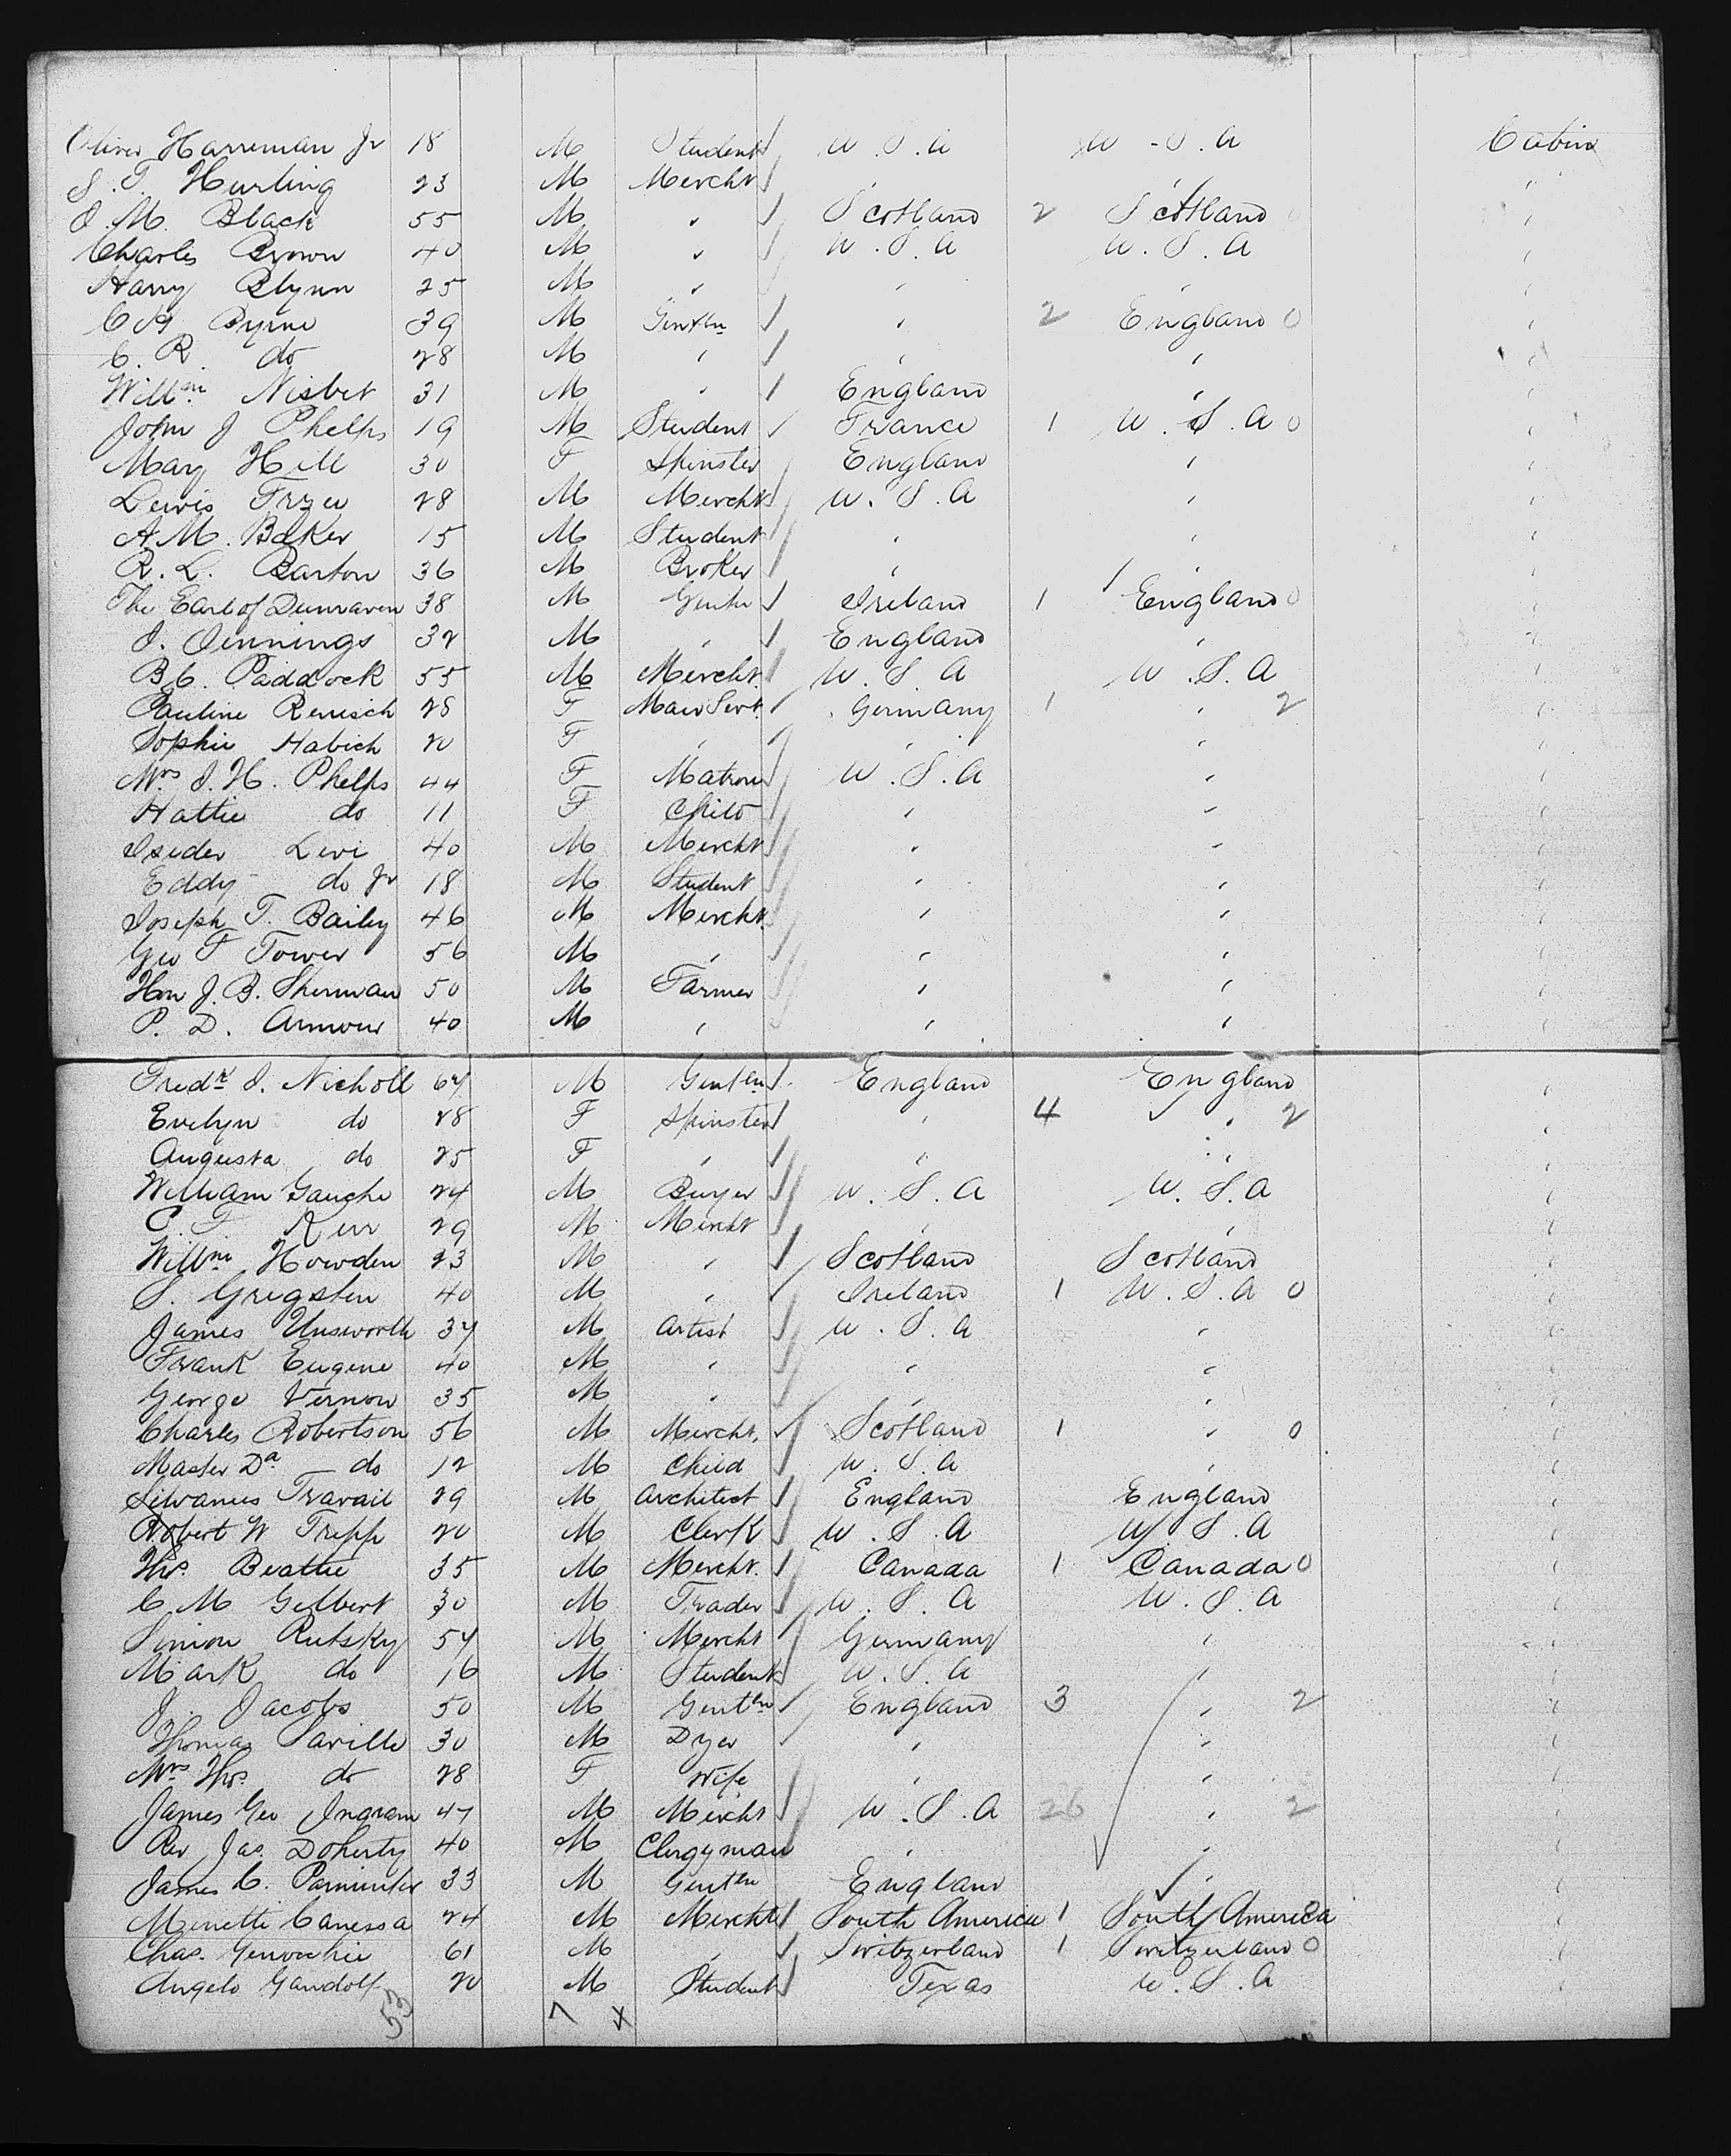 Oliver Harreman Jr 18 M Student U.S.A U.S.A Cabin
S.T. Hurling 23 M Mercht " " "
J.M. Black 55 M " Scotland 2 Scotland 0 "
Charles Brown 40 M " U.S.A U.S.A "
Harry Blynn 25 M " " " "
C A Byrne 39 M Gentln " 2 England 0 "
C. R. do 28 M " " " "
Willm Nisbet 31 M " England " "
John J Phelps 19 M Student France 1 U.S.A 0 "
Mary Hill 30 F Spinster England " "
Lewis 28 M Mercht U.S.A " "
A.M. Baker 15 M Student " " "
R.L. Barton 36 M Broker " " "
The Earl of Dunraven 38 M Gentn Ireland 1 England 0 "
J. Jennings 32 M " England " "
B C. Paddock 55 M Mercht. U.S.A U.S.A "
Pauline Renesch 28 F Maid Servt. Germany 1 " 2 "
Sophie Habich 20 F " " " "
Mrs J.H. Phelps 44 F Matron U.S.A " "
Hattie do 11 F Child " " "
Isidor Levi 40 M Mercht " " "
Eddy do Jr 18 M Student " " "
Joseph T. Bailey 46 M Mercht. " " "
Geo F Tower 56 M " " " "
Hon J.B. Sherman 50 M Farmer " " "
P.D. Armour 40 M " " " "
Fredk J. Nicholl 64 M Gentln England England "
Evelyn do 28 F Spinster " 4 " 2 "
Augusta do 25 F " " " "
William Gauche 24 M Buyer U.S.A U.S.A "
C.F. Kerr 29 M Mercht " " "
Willm Howden 23 M " Scotland Scotland "
S. Grigsten 40 M " Ireland 1 U.S.A 0 "
James Unsworth 34 M Artist U.S.A " "
Frank Eugene 40 M " " " "
George Vernon 35 M " " " "
Charles Robertson 56 M Mercht. Scotland 1 " 0 "
Master Da do 12 M Child U.S.A " "
Silvanus Travail 29 M Architect England England "
Robert W Tripp 20 M Clerk U.S.A U.S.A "
Thos. Beattie 35 M Mercht. Canada 1 Canada 0 "
C.M Gilbert 30 M Trader U.S.A U.S.A "
Simon Rutsky 54 M Mercht Germany " "
Mark do 16 M Student U.S.A " "
J. Jacobs 50 M Gentln England 3 " 2 "
Thomas Saville 30 M Dyer " " "
Mrs Thos. do 28 F Wife " " "
James Geo Ingram 47 M Mercht U.S.A 26 " 2 "
Rev Jas. Doherty 40 M Clergyman " " "
James C. Parminter 33 M Gentln England " "
Canessa 24 M Mercht South America 1 South America "
Chas. 61 M " Switzerland 1 Switzerland 0 "
Angelo Gandolf 20 M Student Texas U.S.A "
53 7 X